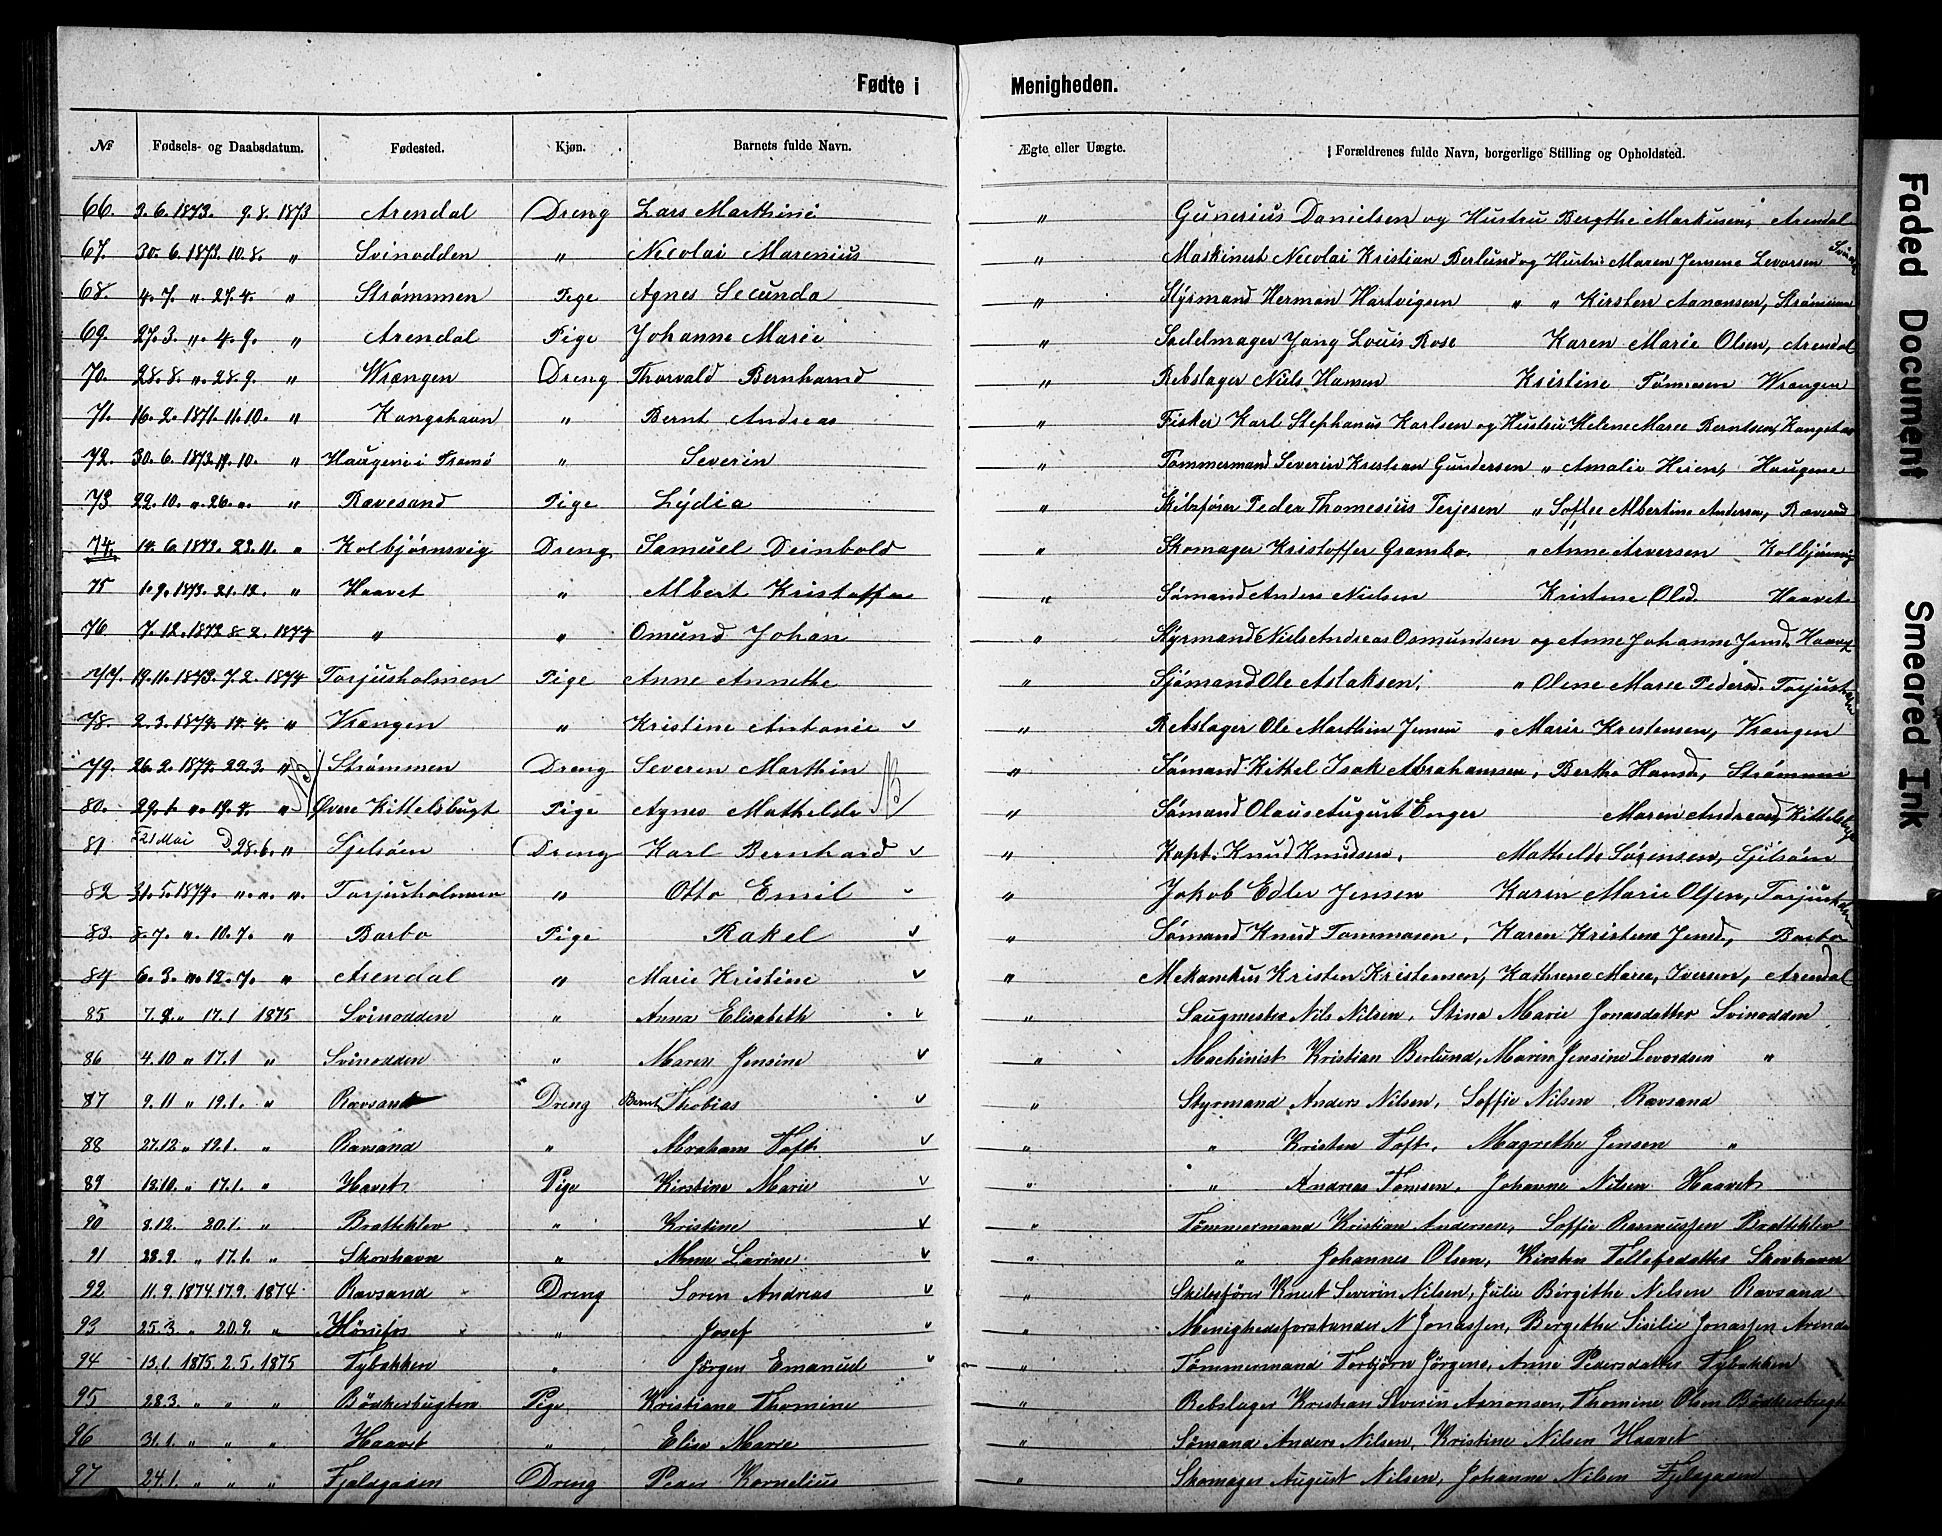 Fødte i Menigheden.
№ Fødsels- og Daabsdatum. Fødested. Kjøn. Barnets fulde Navn. Ægte eller Uægte. Forældrenes fulde Navn, borgerlige Stilling og Opholdsted.
66. 9. 6. 1873. 9. 8. 1873 Arendal Dreng Lars Marthini " Gunerius Danielsen og Hustru Bergthe Markusen, Arendal
67. 30. 6. 1873. 10. 8. " Svinodden " Nicolai Marenius " Maskinest Nicolai Kristian Berlund og Hustru Maren Jensene Levorsen
68. 4. 7. " 27. 4. " Strømmen Pige Agnes Secunda " Styrmand Herman Hartvigsen " " Kirsten Aanonsen, Strømmen
69. 27. 3. " 4. 9. " Arendal Pige Johanne Marie " Sadelmager Jang Louis Rose Karen Marie Olsen, Arendal
70. 28. 8. " 28. 9. " Wrængen Dreng Thorvald Bernhard " Rebslager Niels Hansen Kristine Tønnesen Wrængen
71. 16. 2. 1871. 11. 10. " Kongshavn " Bernt Andreas " Fisker Karl Stephanus Karlsen og Hustru Helene Marie Berntsen
72. 30. 6. 1873. 19. 10. " Haugene i Tromø " Severin " Tømmermand Severin Kristian Gundersen " Amalie Heien, Haugene
73 22. 10. " 26. " " Rævesand Pige Lydia " Skibsfører Peder Thomesius Terjesen " Soffie Albertine
74. 14. 6. 1873. 23. 11. " Kolbjørnsvig Dreng Samuel Deinbold " Skomager Kristoffer Grambo. " Anne Arversen Kolbjørnsvig
75 1. 9. 1873. 21. 12. " Haavet " Albert Kristoffer " Sømand Anders Nielsen Kristene Olsd. Haavet
76 7. 12. 1872 8. 2. 1874 " " Omund Johan " Styrmand Niels Andreas Osmundsen og Anne Johanne Jensd. Haavet
77. 19. 11. 1873. 7. 2. 1874 Torjusholmen Pige Anne Annethe " Sjømand Ole Aslaksen, " Olene Marie Pedersd. Torjusholmen
78. 2. 3. 1874. 14. 4. " Vrængen " Kristine Antonie " Rebslager Ole Marthin Jensen " Marie Kristensen, Vrængen
79. 26. 2. 1874. 22. 3. " Strømmen Dreng Severin Marthin " Sømand Kittel Isak Abrahamsen, Bertha Hansd, Strømmen
80. 29. 1. " 19. 4. " Øvre Kittelsbugt Pige Agnes Mathilde " Sømand Olaus August Enger Maren Andreasd, Kittelsbugt
81 F 21 Mai D 28. 6. " Gjelsøen Dreng Karl Bernhard " Kapt. Knud Knudsen, Mathilde Sørensen, Gjelsøen
82 31. 5. 1874. " " " Torjusholmen " Otto Emil " Jakob Edler Jensen Karen Marie Olsen, Torjusholmen
83. 8. 7. " 10. 7. " Barbo Pige Rakel " Sømand Knud Tommasen, Karen Kristene Jensd, Barbo
84 6. 3. " 12. 7. " Arendal " Marie Kristine " Mekanikus Kristen Kristensen, Kathrene Marie, Iversen, Arendal
85 7. 9. " 17. 1 1875 Svinodden " Anna Elisabeth " Saugmester Nils Nilsen, Stina Marie Jonasdatter Svinodden
86 4. 10 " 17. 1 " Svinodden " Maren Jensine " Machinist Kristian Berlund, Maren Jensine Levordsen "
87 9. 11 " 19. 1. " Rævsand Dreng Bernt Thobias " Styrmand Anders Nilsen, Soffie Nilsen Rævsand
88 27. 12 " 12. 1. " Rævsand " Abraham Toft " " Kristen Toft, Magrethe Jensen "
89 13. 10. " 17. 1. " Havet Pige Kirstine Marie " " Andreas Tomsen, Johanne Nilsen Haavet
90 8. 12. 20. 1. " Bratteklev " Kristine " Tømmermand Kristian Andersen, Soffie Rasmussen Bratteklev
91 28. 9. " 17. 1. " Skovhavn " Anne Larine " " Johannes Olsen, Kirsten Tellefsdatter Skovhavn
92 11. 9. 1874 17. 9. 1874 Rævsand Dreng Soren Andreas " Skibsfører Knut Severin Nilsen, Julie Bergithe Nilsen Rævsand
93 25. 3. " 20. 9. " Hønefos " Josef " Menighedsforstander N Jonassen, Bergithe Sisilie Jonassen Arendal
94 13. 1. 1875. 2. 5. 1875 Tybakken " Jörgen Emanuel " Tømmermand Torbjørn Jörgens, Anne Pedersdatter Tybakken
95 28. 3 " " " Bödkerbugten Pige Kristiane Thomine " Rebslager Kristian Severin Aanonsen, Thomine Olsen Bödkerbugt
96 31. 1. " " " Haavet " Elise Marie " Sømand Anders Nilsen, Kristine Nilsen Haavet
97 24. 1. " " " Fjeldgaden Dreng Peder Kornelius " Skomager August Nilsen, Johanne Nilsen Fjeldgaden
Faded Document
Smeared Ink